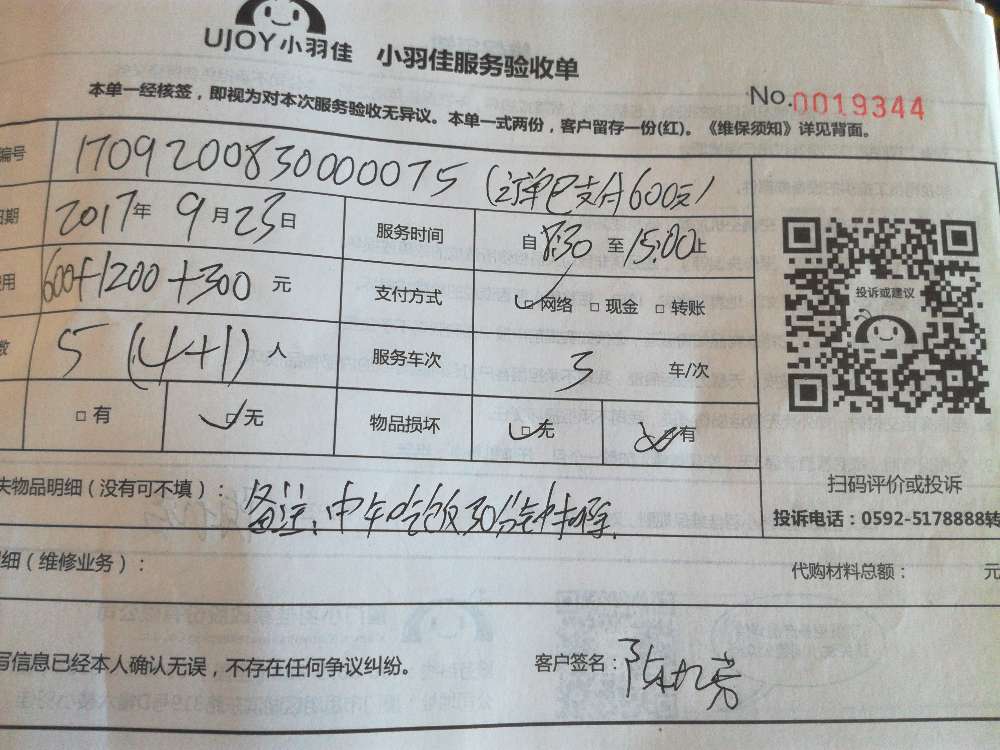 UJOY小羽佳 小羽佳服务验收单
No.0019344
本单一经核签，即视为对本次服务验收无异议。本单一式两份，客户留存一份(红)。《维保须知》详见背面。
编号 1709200830000075 (订单已支付600元)
日期 2017年 9月23日 服务时间 自8:30至15:00止
用 600+1200+300 元 支付方式 □网络 □现金 □转账
数 5 (4+1) 人 服务车次 3 车/次
□有 □无 物品损坏 □无 □有
投诉或建议
扫码评价或投诉
投诉电话：0592-5178888转
失物品明细(没有可不填)： 备注、中午吃饭30分钟扣除.
细(维修业务)： 代购材料总额： 元
写信息已经本人确认无误，不存在任何争议纠纷。 客户签名：陈